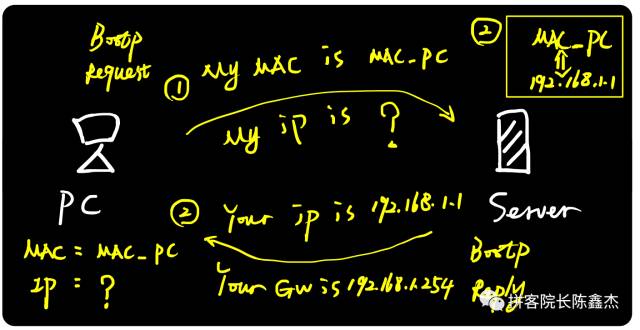 Bootp
Request
① My MAC is MAC_PC
My ip is ?
②
MAC_PC
192.168.1.1
PC
MAC = MAC_PC
IP = ?
② Your ip is 192.168.1.1
Your GW is 192.168.1.254
Server
Bootp
Reply
拼客院长陈鑫杰